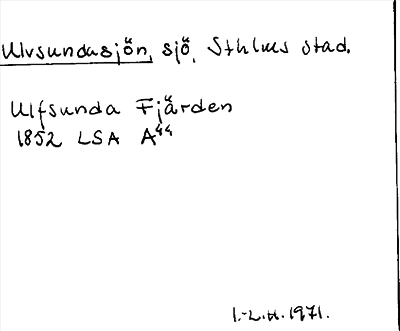 Ulvsundasjön, sjö, Sthlms stad.
Ulfsunda Fjärden
1852 LSA A44
I.-L.H. 1971.